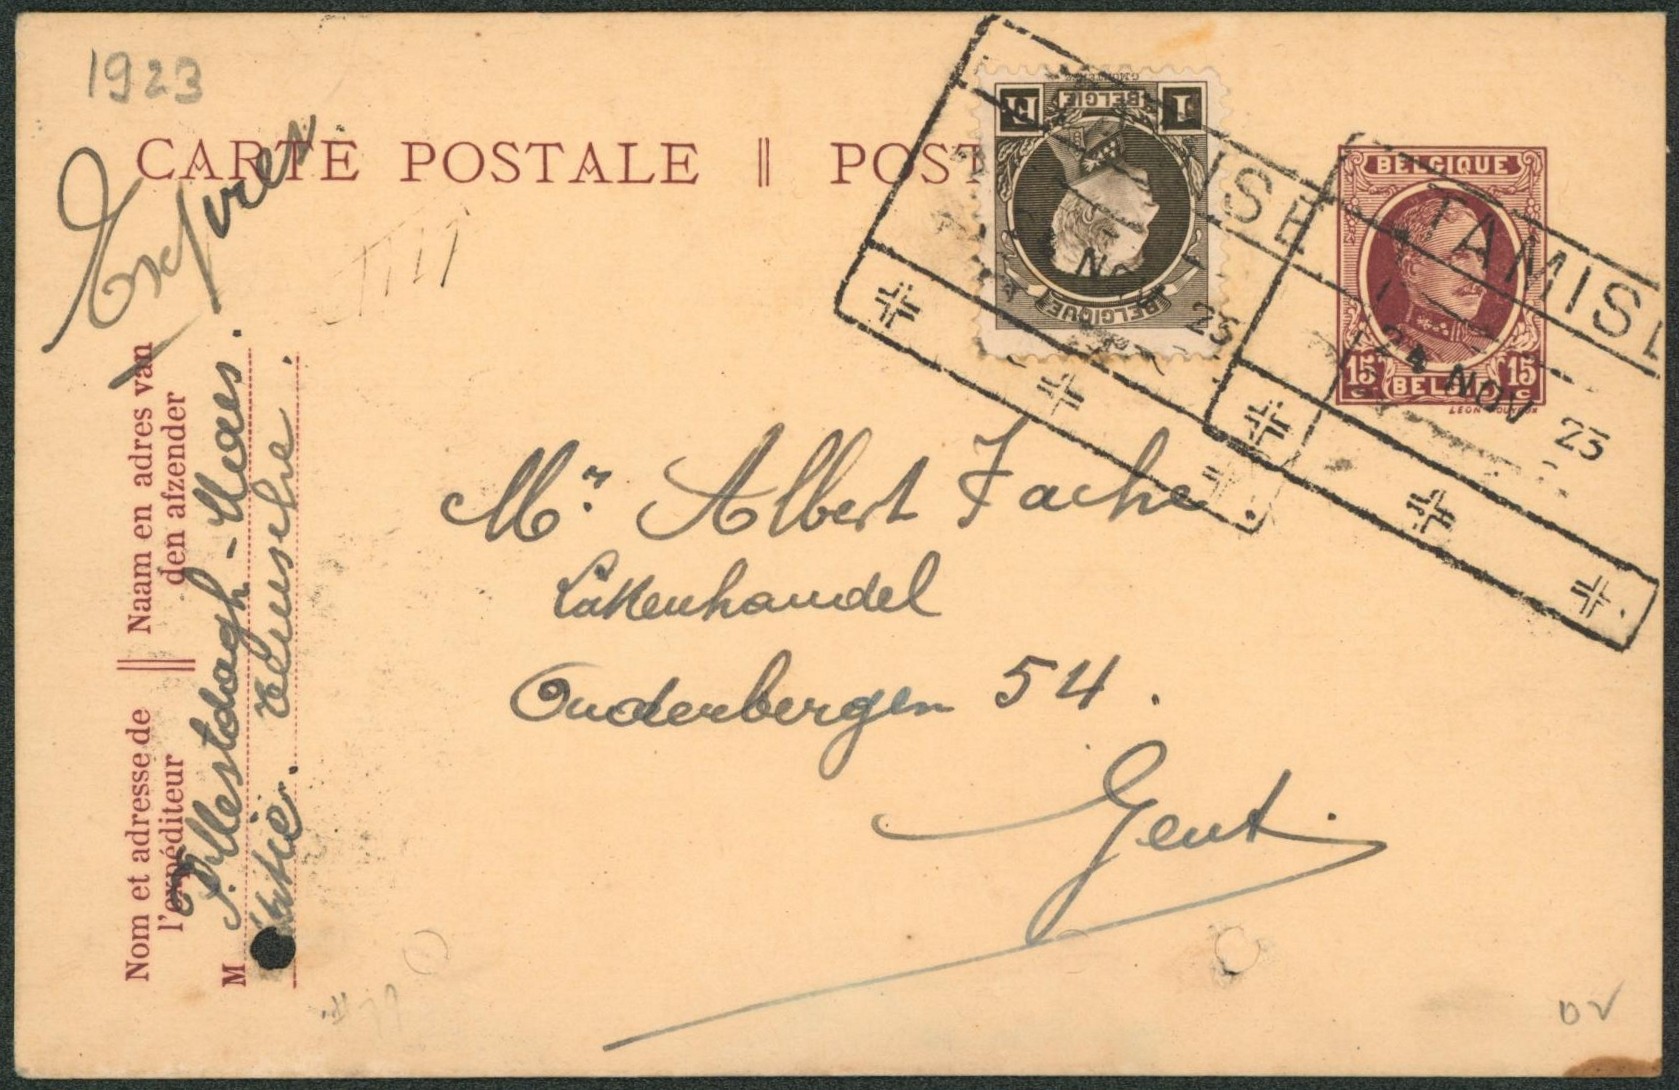 1923
Exprès
CARTE POSTALE || POST
1 BELGIE 1F
BELGIQUE
BELGIQUE
15 BELGIË 15
C C
TAMISE
24 NOV 23
TAMISE
24 NOV 23
Mr. Albert Fache
Lakenhandel
Onderbergen 54.
Gent.
Nom et adresse de || Naam en adres van
l'expéditeur den afzender
M P. Mestdagh-Maes.